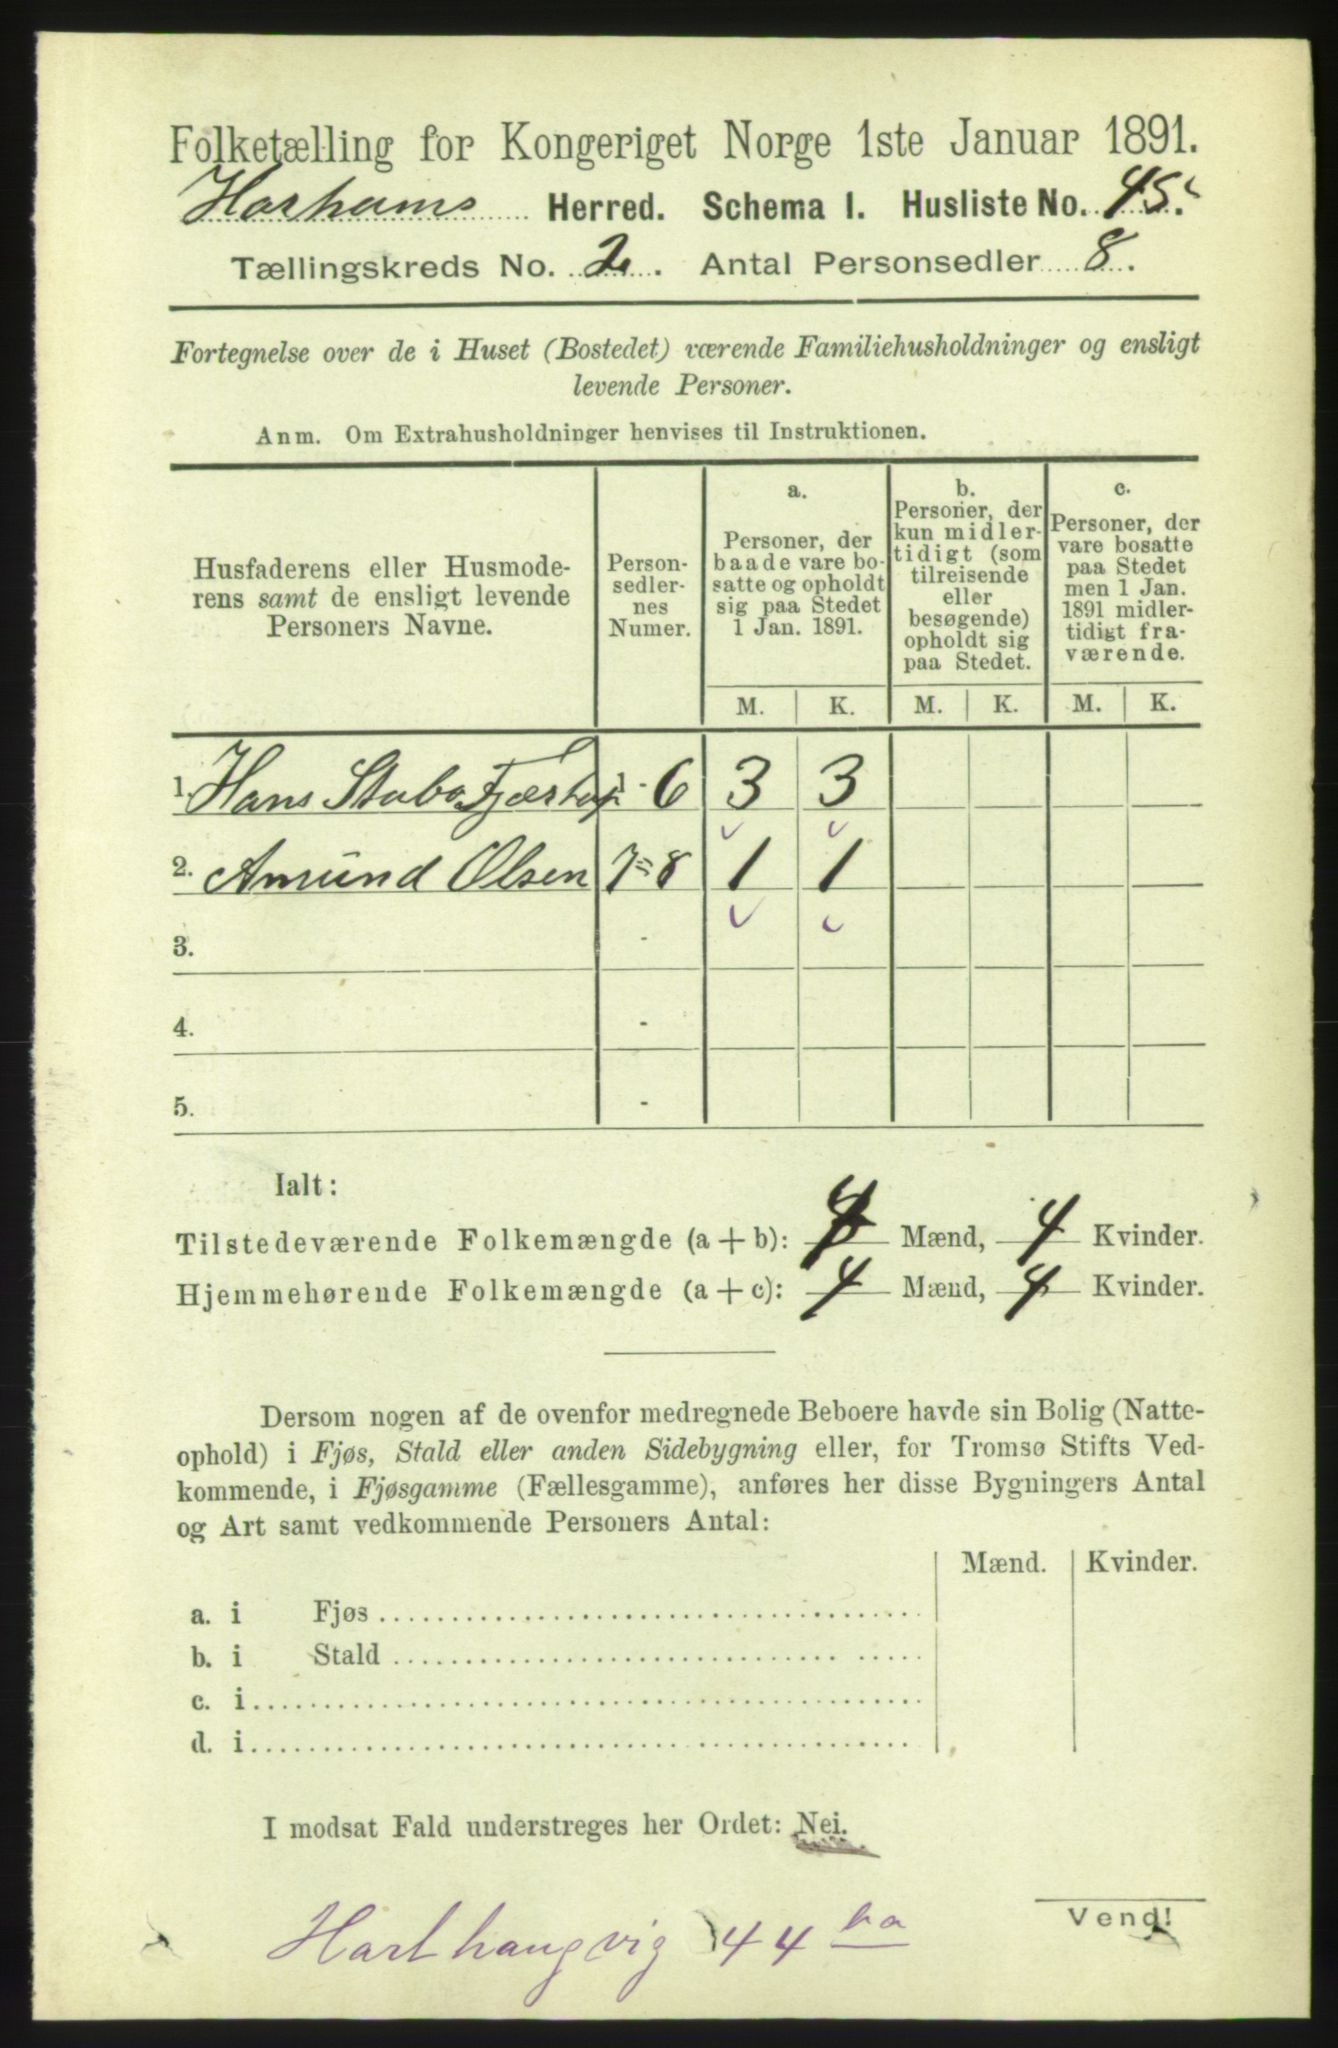 Folketælling for Kongeriget Norge 1ste Januar 1891.
Harhams Herred. Schema 1. Husliste No. 45.
Tællingskreds No. 2. Antal Personsedler 8.
Fortegnelse over de i Huset (Bostedet) værende Familiehusholdninger og ensligt
levende Personer.
Anm. Om Extrahusholdninger henvises til Instruktionen.
Husfaderens eller Husmode-
rens samt de ensligt levende
Personers Navne.
Person-
sedler-
nes
Numer.
a.
Personer, der
baade vare bo-
satte og opholdt
sig paa Stedet
1 Jan. 1891.
b.
Personer, der
kun midler-
tidigt (som
tilreisende
eller
besøgende)
opholdt sig
paa Stedet.
c.
Personer, der
vare bosatte
paa Stedet
men 1 Jan.
1891 midler-
tidigt fra-
værende.
M. K. M. K. M. K.
1. Hans Stabo 1 - 6 3 3
2. Amund Olsen 7 - 8 1 1
3. -
4. -
5. -
Ialt:
Tilstedeværende Folkemængde (a + b): 4 Mænd, 4 Kvinder.
Hjemmehørende Folkemængde (a + c): 4 Mænd, 4 Kvinder.
Dersom nogen af de ovenfor medregnede Beboere havde sin Bolig (Natte-
ophold) i Fjøs, Stald eller anden Sidebygning eller, for Tromsø Stifts Ved-
kommende, i Fjøsgamme (Fællesgamme), anføres her disse Bygningers Antal
og Art samt vedkommende Personers Antal:
Mænd. Kvinder.
a. i Fjøs
b. i Stald
c. i
d. i
I modsat Fald understreges her Ordet: Nei.
Vend!
Harlhaugvig 44 ba